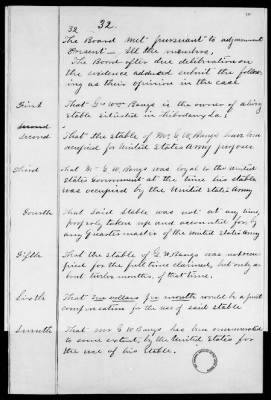 32.
32
The Board met pursuant to adjournment
Present — All the members,
The Board after due deliberation on
the evidence adduced submit the follow-
ing as their opinion in the case
First That Geo Wm Bangs is the owner of a livery
stable situated in Thibodeaux La;
second
Second That the stable of Mr G. W. Bangs has been
occupied for United States Army purposes
Third That Mr G. W. Bangs was loyal to the United
States Government at the time his stable
was occupied by the United States Army
Fourth That said stable was not at any time
properly taken up and accounted for by
any Quartermaster of the United States Army
Fifth That the stable of G. W. Bangs was not occu-
pied for the full time claimed, but only a-
bout twelve months, of that time.
Sixth That dollars per month would be a just
compensation for the use of said stable
Seventh That Mr G W Bangs has been remunerated
to some extent, by the United States for
the use of his stable.